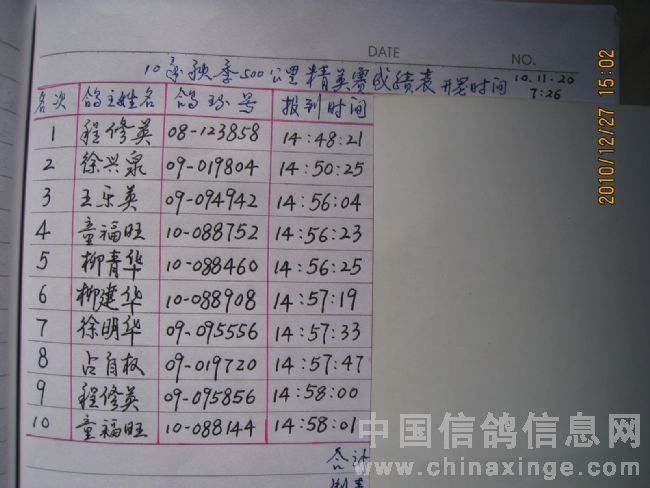 DATE
NO.
10年秋季500公里精英赛成绩表 开笼时间 10.11.20
7:26
名次 鸽主姓名 鸽环号 报到时间
1 程修英 08-123858 14:48:21
2 徐兴泉 09-019804 14:50:25
3 王乐英 09-094942 14:56:04
4 童福旺 10-088752 14:56:23
5 柳青华 10-088460 14:56:25
6 柳建华 10-088908 14:57:19
7 徐明华 09-095556 14:57:33
8 占自权 09-019720 14:57:47
9 程修英 09-095856 14:58:00
10 童福旺 10-088144 14:58:01
合计
制表
2010/12/27 15:02
中国信鸽信息网
www.chinaxinge.com